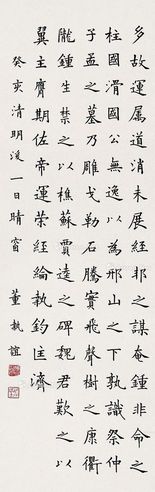 多故運属道消未展經邦之謀奄鍾非命之
柱國滑國公無逸以為邢山之下孰識祭仲
子孟之墓乃雕戈勒石騰實飛聲樹之康衢
隴鍾生禁之以樵蘇賈逵之碑魏君歎之以
翼主膺期佐帝運策經綸執鈞匡濟
癸亥清明後一日晴窗
董執誼